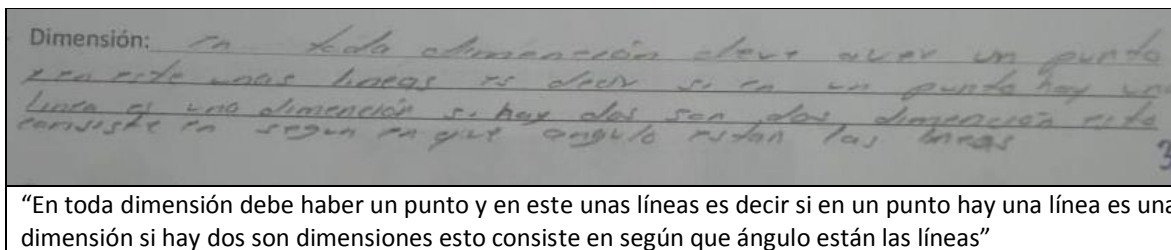 Dimensión: En toda dimención deve aver un punto
y en este unas lineas es decir si en un punto hay una
linea es una dimención si hay dos son dos dimención esto
consiste en segun en que angulo estan las lineas
3
“En toda dimensión debe haber un punto y en este unas líneas es decir si en un punto hay una línea es una
dimensión si hay dos son dimensiones esto consiste en según que ángulo están las líneas”